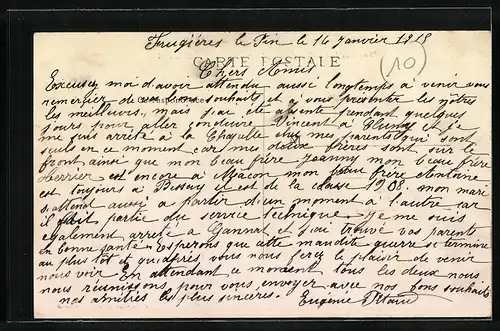 Frugières le Pin le 16 Janvier 1915
CARTE POSTALE
10
Chers Amis
Excusez moi d'avoir attendu aussi longtemps à venir vous
remercier de vos bons souhaits et à vous présenter les nôtres
les meilleurs, mais j'ai été absente pendant quelques
jours pour aller conduire Vincent à Cluny et je
me suis arrêté à la Chapelle chez mes parents qui sont
seuls en ce moment car mes deux frères sont sur le
front ainsi que mon beau frère Joanny mon beau frère
Perrier est encore à Macon mon beau frère Antoine
est toujours à il est de la classe 1908. mon mari
s'attend aussi a partir d'un moment à l'autre car
il fait partie du service technique. Je me suis
également arrêté à Gannat et j'ai trouvé vos parents
en bonne santé. Espérons que cette maudite guerre se termine
au plus tôt et qu'après, vous nous ferez le plaisir de venir
nous voir En attendant ce moment tous les deux nous
nous réunissons pour vous envoyer avec nos bons souhaits
nos amitiés les plus sincères. Eugénie